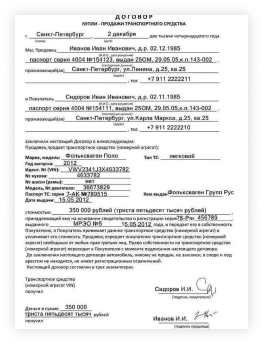 ДОГОВОР
КУПЛИ - ПРОДАЖИ ТРАНСПОРТНОГО СРЕДСТВА
г. Санкт-Петербург 2 декабря две тысячи четырнадцатого года
Мы, Продавец, Иванов Иван Иванович, д.р. 02.12.1985
паспорт серия 4004 №154123, выдан 25ОМ, 29.05.05,к.п.143-002
проживающий(ая) Санкт-Петербург, ул.Ленина, д.25, кв.25
тел. +7 911 2222210
и Покупатель, Сидоров Иван Иванович, д.р. 02.11.1985
паспорт серия 4004 №154111, выдан 25ОМ, 29.05.05,к.п.143-002
проживающий(ая) Санкт-Петербург, ул.Карла Маркса, д.25, кв.25
тел. +7 911 2222211
заключили настоящий Договор о нижеследующем:
Продавец, продает транспортное средство (номерной агрегат):
Марка, модель: Фольксваген Поло Тип ТС: легковой
Год выпуска: 2012
Идент. № (VIN): VWV2341J3X4633782
№ кузова: 4633782
№ шасси (рамы): нет
Модель, № двигателя: 36673829
Паспорт ТС: серия 7-АК №789515 Кем выдан Фольксваген Групп Рус
Дата выдачи: 15.05.2012
стоимостью: 350 000 рублей (триста пятьдесят тысяч рублей)
принадлежащий ему на основании свидетельства о регистрации 78-Рчн, 456789
выданного МРЭО №5 15.05.2012 года.
Покупатель, и Покупатель принимает данное транспортное средство (номерной агрегат) и
уплачивает его стоимость.
Продавец, обязуется передать покупателю транспортное средство (номерной
агрегат) свободным от любых прав третьих лиц. Право собственности на транспортное средство
(номерной агрегат) переходит к Покупателю с момента подписания настоящего договора.
До заключения настоящего договора ТС никому не продано, не заложено, в споре и под
арестом не находится, не имеет ограничений в использовании.
Настоящий Договор составлен в трех экземплярах.
Транспортное средство
(номерной агрегат VIN)
получил Сидоров И.И.
(подпись покупателя)
Деньги в сумме 350 000
триста пятьдесят тысяч рублей
получил Иванов И.И.
(подпись продавца)